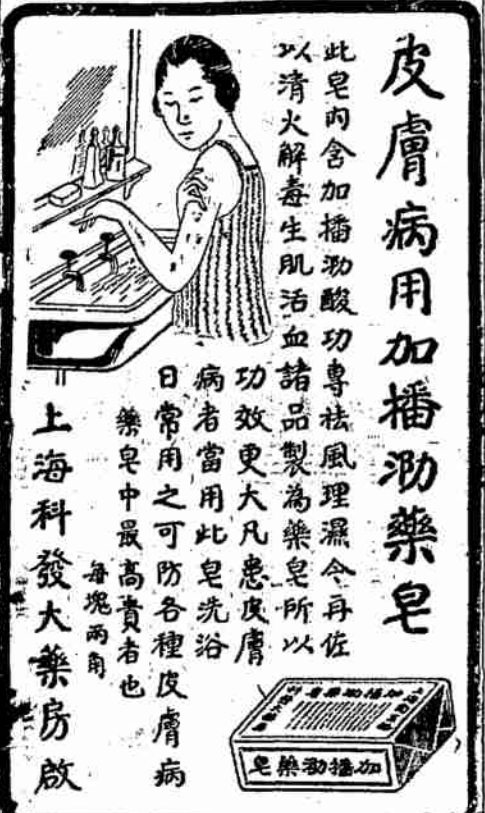 皮膚病用加播泐藥皂
此皂內含加播泐酸功專祛風理濕今再佐
以清火解毒生肌活血諸品製為藥皂所以
功效更大凡患皮膚
病者當用此皂洗浴
日常用之可防各種皮膚病
藥皂中最高貴者也
每塊兩角
上海科發大藥房啟
加播泐藥皂
皂藥泐播加